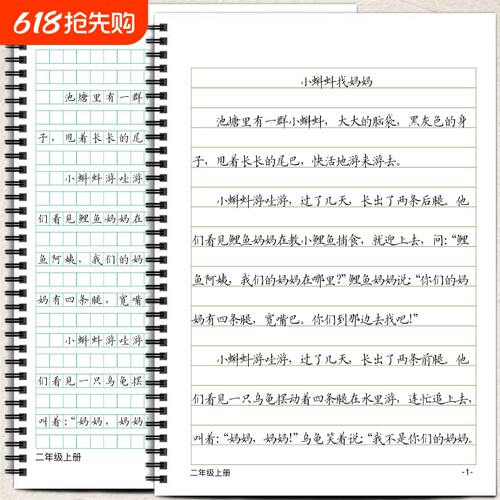 618抢先购
池塘里有一群
子，甩着长长的尾
小蝌蚪游哇游
们看见鲤鱼妈妈在
鱼阿姨，我们的妈
妈有四条腿，宽嘴
小蝌蚪游哇游
们看见一只乌龟摆
叫着：“妈妈，妈妈
二年级上册
小蝌蚪找妈妈
池塘里有一群小蝌蚪，大大的脑袋，黑灰色的身
子，甩着长长的尾巴，快活地游来游去。
小蝌蚪游哇游，过了几天，长出了两条后腿。他
们看见鲤鱼妈妈在教小鲤鱼捕食，就迎上去，问：“鲤
鱼阿姨，我们的妈妈在哪里？”鲤鱼妈妈说：“你们的妈
妈有四条腿，宽嘴巴。你们到那边去找吧！”
小蝌蚪游哇游，过了几天，长出了两条前腿。他
们看见一只乌龟摆动着四条腿在水里游，连忙追上去，
叫着：“妈妈，妈妈！”乌龟笑着说：“我不是你们的妈妈。
二年级上册
-1-